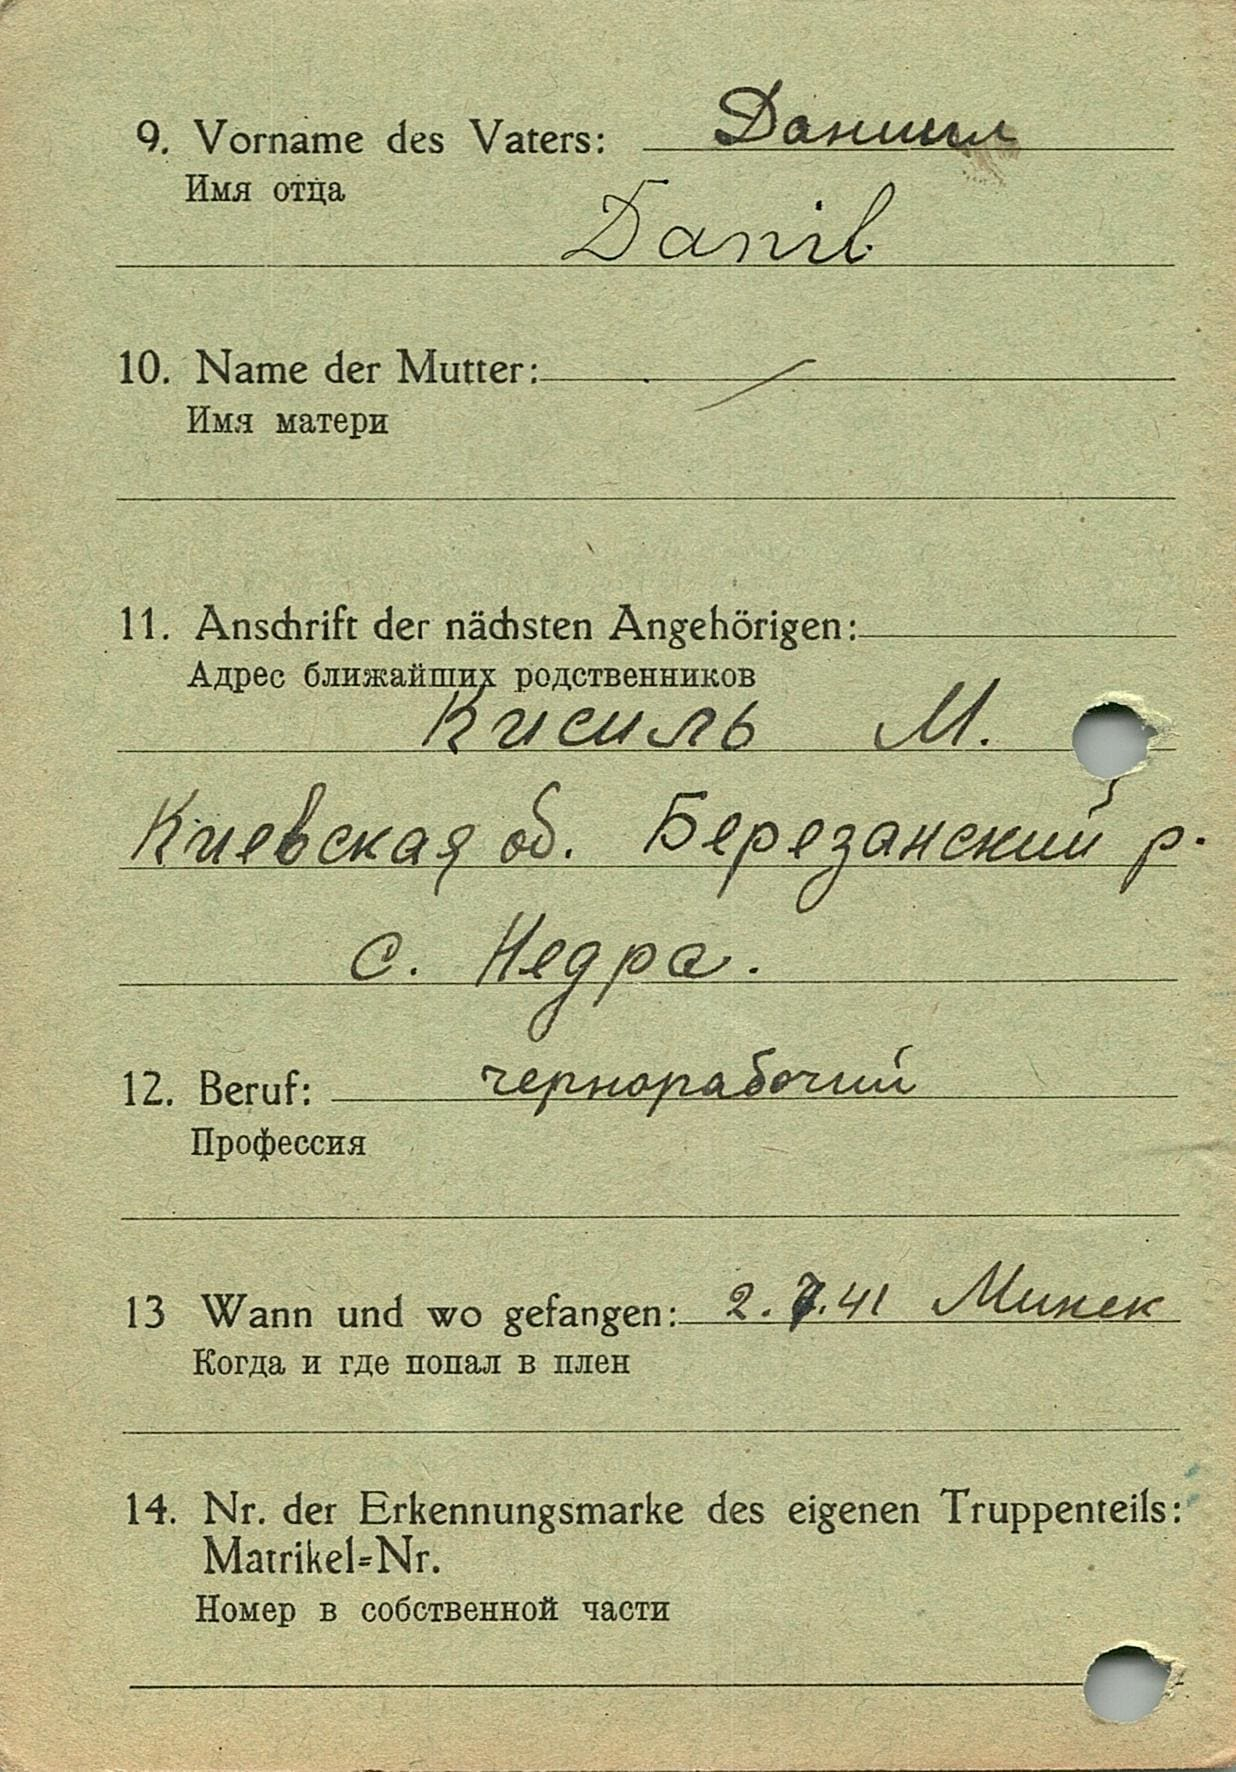 9. Vorname des Vaters: Даниил
Имя отца
Danil
10. Name der Mutter:
Имя матери
11. Anschrift der nächsten Angehörigen:
Адрес ближайших родственников
Кисиль М.
Киевская об. Березанский р.
с. Недра.
12. Beruf: чернорабочий
Профессия
13 Wann und wo gefangen: 2.7.41 Минск
Когда и где попал в плен
14. Nr. der Erkennungsmarke des eigenen Truppenteils:
Matrikel=Nr.
Номер в собственной части